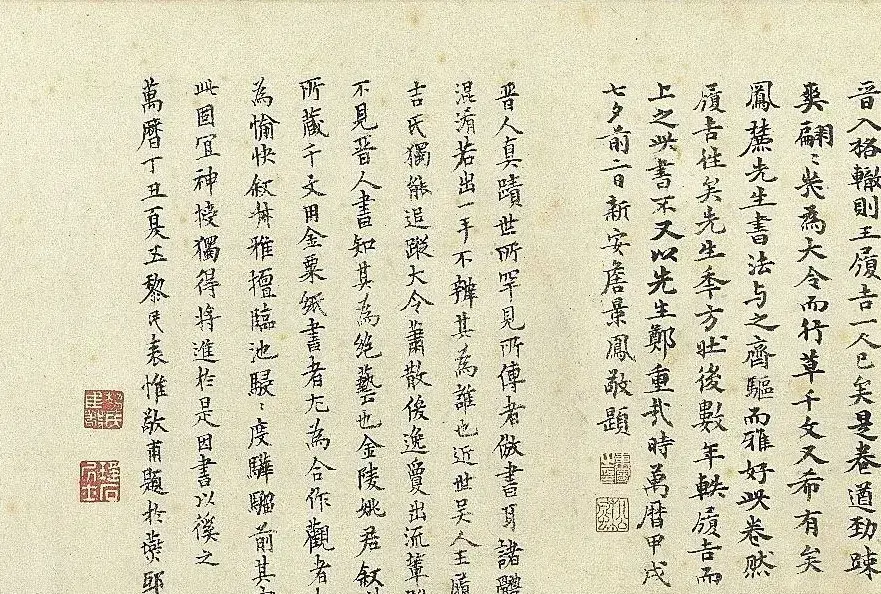 晉入格轍則王履吉一人已矣是卷遒勁踈
爽翩〻為大令而行草千文又希有矣
鳳麓先生書法与之齊驅而雅好此卷然
履吉往矣先生季方壯後數年軼履吉而
上之此書不又以先生鄭重哉時萬曆甲戌
七夕前二日新安詹景鳳敬題
晉人真蹟世所罕見所傳者倣書耳諸體
混淆若出一手不辨其為誰也近世吳人王履
吉氏獨能追蹤大令蕭散俊逸夐出流輩
不見晉人書知其為絕藝也金陵姚君叙
所藏千文用金粟紙書者尤為合作觀者
為愉快叙雅擅臨池駸〻度驊騮前其
此固宜神獨得將進於是因書以之
萬曆丁丑夏五黎民表惟敬甫題於邸